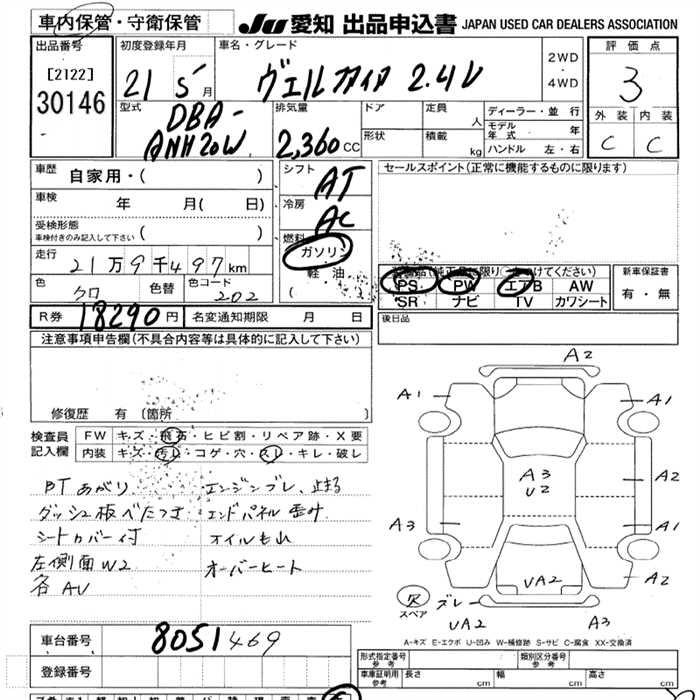 車内保管・守衛保管
JU 愛知 出品申込書 JAPAN USED CAR DEALERS ASSOCIATION
出品番号
[2122]
30146
初度登録年月
21 5 月
車名・グレード
ヴェルファイア 2.4V
2WD
4WD
評価点
3
外装 内装
C C
型式
DBA-
ANH20W
排気量
2,360 CC
ドア
形状
定員
人
積載
kg
ディーラー・並行
モデル年式 年
ハンドル 左・右
車歴
自家用・( )
車検
年 月( 日)
受検形態
車検付きのみ記入して下さい ( )
走行
21万9千497km
色
クロ
色替
色コード
202
シフト
AT
冷房
AC
燃料
ガソリン
軽油
( )
セールスポイント(正常に機能するものに限ります)
新車保証書
有・無
PS PW エアB AW
SR ナビ TV カワシート
R券 18290円 名変通知期限 月 日
後日品
注意事項申告欄(不具合内容等は具体的に記入して下さい)
修復歴 有 〔箇所 〕
検査員
記入欄
FW キズ・飛石・ヒビ割・リペア跡・X要
内装 キズ・汚レ・コゲ・穴・スレ・キレ・破レ
PTあがり エンジンブレ、止まる
ダッシュ板べたつき エンドパネル歪サ
シートカバー付 オイルもれ
左側面W2 オーバーヒート
各AU
A2
A1 A1
A3
U2
A2
A3 A1
A2
UA2
欠
スペア
ズレ
UA2 A3
A-キズ E-エクボ U-凹み W-補修跡 S-サビ C-腐食 XX-交換済
車台番号 8051469
登録番号
型式指定番号
参考
類別区分番号
参考
車庫証明用
参考
長さ cm 幅 cm 高さ cm